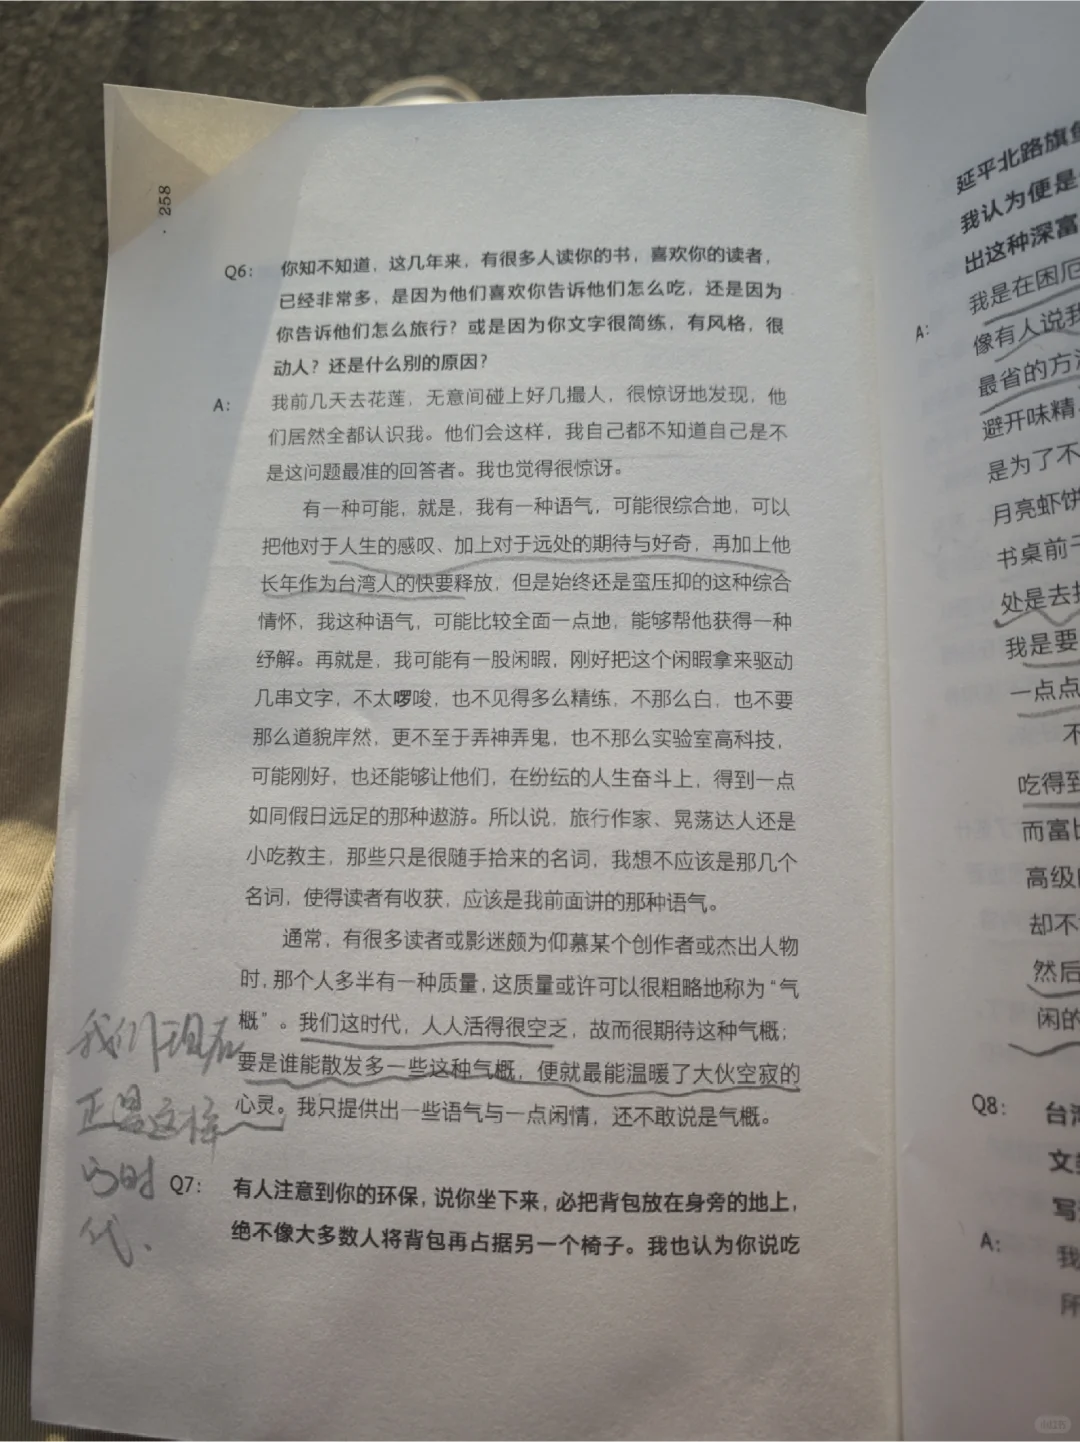 258
Q6： 你知不知道，这几年来，有很多人读你的书，喜欢你的读者，
已经非常多，是因为他们喜欢你告诉他们怎么吃，还是因为
你告诉他们怎么旅行？或是因为你文字很简练，有风格，很
动人？还是什么别的原因？
A： 我前几天去花莲，无意间碰上好几撮人，很惊讶地发现，他
们居然全都认识我。他们会这样，我自己都不知道自己是不
是这问题最准的回答者。我也觉得很惊讶。
有一种可能，就是，我有一种语气，可能很综合地，可以
把他对于人生的感叹、加上对于远处的期待与好奇，再加上他
长年作为台湾人的快要释放，但是始终还是蛮压抑的这种综合
情怀，我这种语气，可能比较全面一点地，能够帮他获得一种
纾解。再就是，我可能有一股闲暇，刚好把这个闲暇拿来驱动
几串文字，不太啰唆，也不见得多么精练，不那么白，也不要
那么道貌岸然，更不至于弄神弄鬼，也不那么实验室高科技，
可能刚好，也还能够让他们，在纷纭的人生奋斗上，得到一点
如同假日远足的那种遨游。所以说，旅行作家、晃荡达人还是
小吃教主，那些只是很随手拾来的名词，我想不应该是那几个
名词，使得读者有收获，应该是我前面讲的那种语气。
通常，有很多读者或影迷颇为仰慕某个创作者或杰出人物
时，那个人多半有一种质量，这质量或许可以很粗略地称为“气
概”。我们这时代，人人活得很空乏，故而很期待这种气概；
要是谁能散发多一些这种气概，便就最能温暖了大伙空寂的
心灵。我只提供出一些语气与一点闲情，还不敢说是气概。
我们现在
正是这样
的时
代.
Q7： 有人注意到你的环保，说你坐下来，必把背包放在身旁的地上，
绝不像大多数人将背包再占据另一个椅子。我也认为你说吃
延平北路旗鱼
我认为便是
出这种深富
A： 我是在困厄
像有人说我
最省的方法
避开味精
是为了不
月亮虾饼
书桌前
处是去
我是要
一点点
不
吃得到
而富
高级
却不
然后
闲的
Q8： 台湾
文
写
A： 我
所